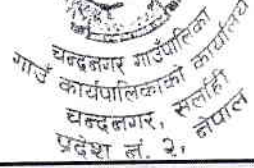 चन्द्रनगर गाउँपालिका
गाउँ कार्यपालिकाको कार्यालय
चन्द्रनगर, सर्लाही
प्रदेश नं. २, नेपाल